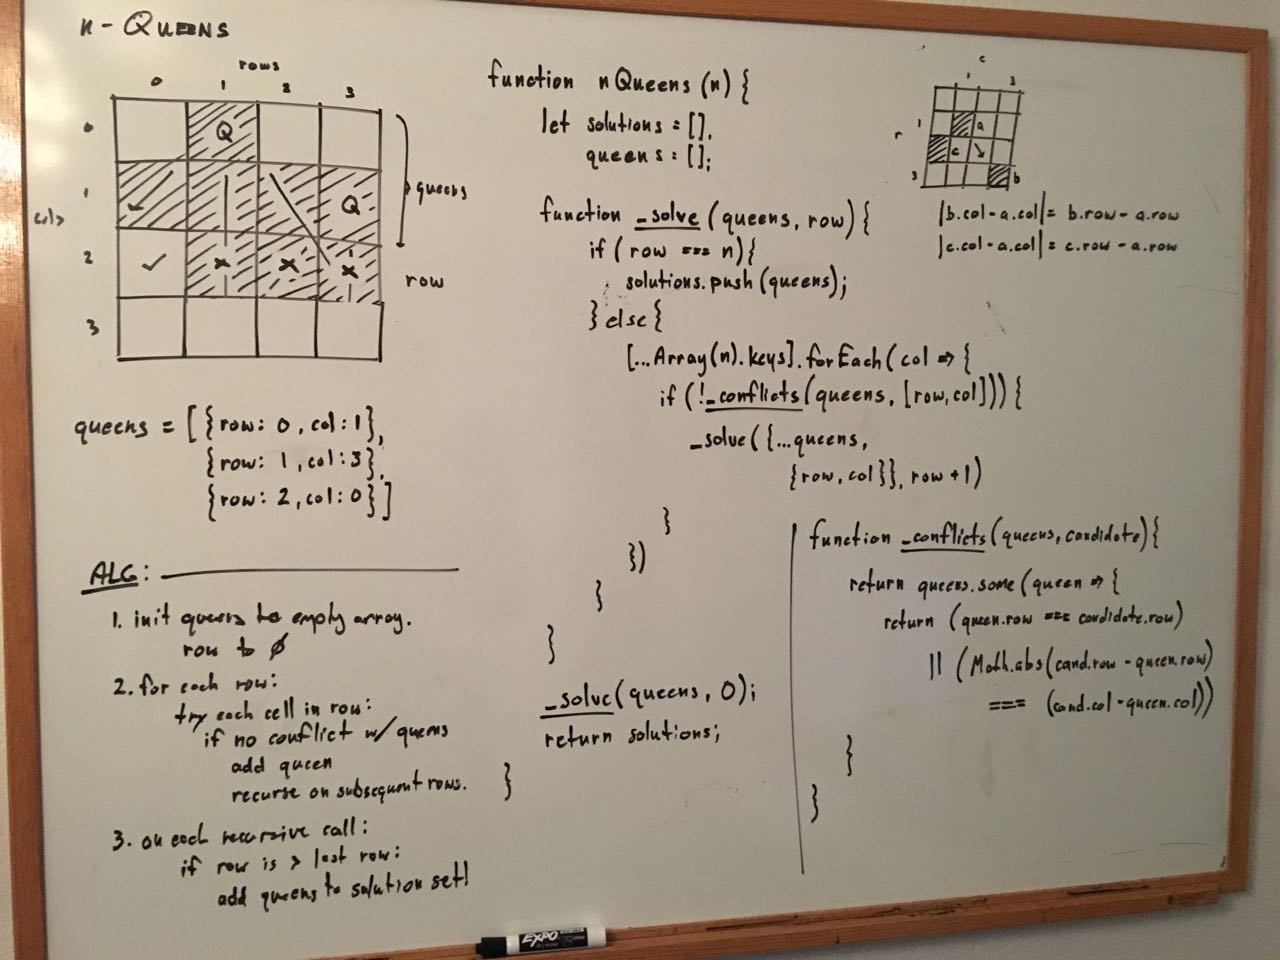 n-QUEENS
rows
0 1 2 3
0
Q
1
Q
queens
cols
2
row
3
queens = [{row: 0, col: 1},
{row: 1, col: 3},
{row: 2, col: 0}]
ALG:
1. init queens to empty array.
row to 0
2. for each row:
try each cell in row:
if no conflict w/ queens
add queen
recurse on subsequent rows.
3. on each recursive call:
if row is > last row:
add queens to solution set!
function nQueens (n) {
let solutions = [],
queens = [];
function _solve (queens, row) {
if (row === n) {
solutions.push (queens);
} else {
[...Array(n).keys].forEach (col => {
if (!_conflicts (queens, [row, col])) {
_solve ({...queens,
{row, col}}, row +1)
}
})
}
}
_solve (queens, 0);
return solutions;
}
c
1 3
1
a
r
c
3
b
|b.col - a.col| = b.row - a.row
|c.col - a.col| = c.row - a.row
function _conflicts (queens, candidate) {
return queens.some (queen => {
return (queen.row === candidate.row)
|| (Math.abs (cand.row - queen.row)
=== (cand.col - queen.col))
}
}
EXPO